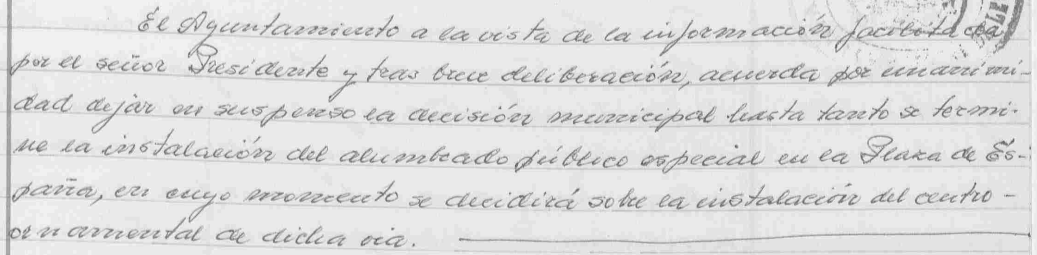 El Ayuntamiento a la vista de la información facilitada
por el señor Presidente y tras breve deliberación, acuerda por unanimi-
dad dejar en suspenso la decisión municipal hasta tanto se termi-
ne la instalación del alumbrado público especial en la Plaza de Es-
paña, en cuyo momento se decidirá sobre la instalación del centro -
ornamental de dicha via.